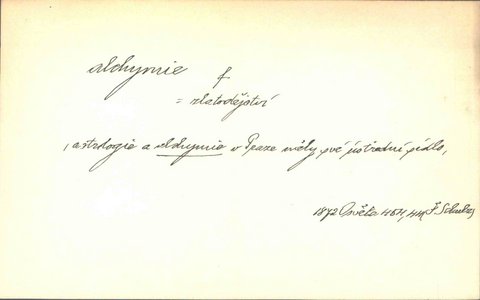 alchymie f
= zlatodějství
, astrologie a alchymie v Praze měly své ústřední sídlo,
1872 Osvěta 464, F. Schulz